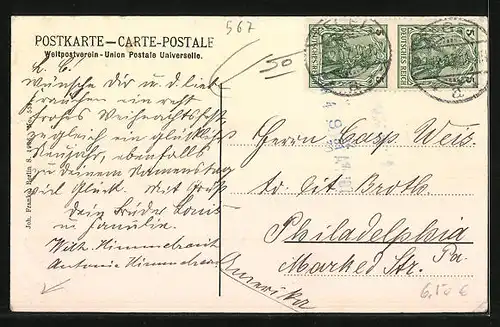 567
POSTKARTE – CARTE-POSTALE
Weltpostverein - Union Postale Universelle.
50
L. C.
Wünsche Dir u. d. lieb.
Frauchen ein recht
frohes Weihnachtsfest
zugleich ein glückliches
Neujahr, ebenfalls
zu deinem Namenstag
viel Glück. Mit Gruß
Dein Bruder Louis
u Familie.
Wilh.
Antonie
Joh. Frank Berlin S.
5 5
DEUTSCHES REICH
5 5
DEUTSCHES REICH
Herrn Casp Weis.
Philadelphia
Pa.
Marked Str.
Amerika
6,50 €